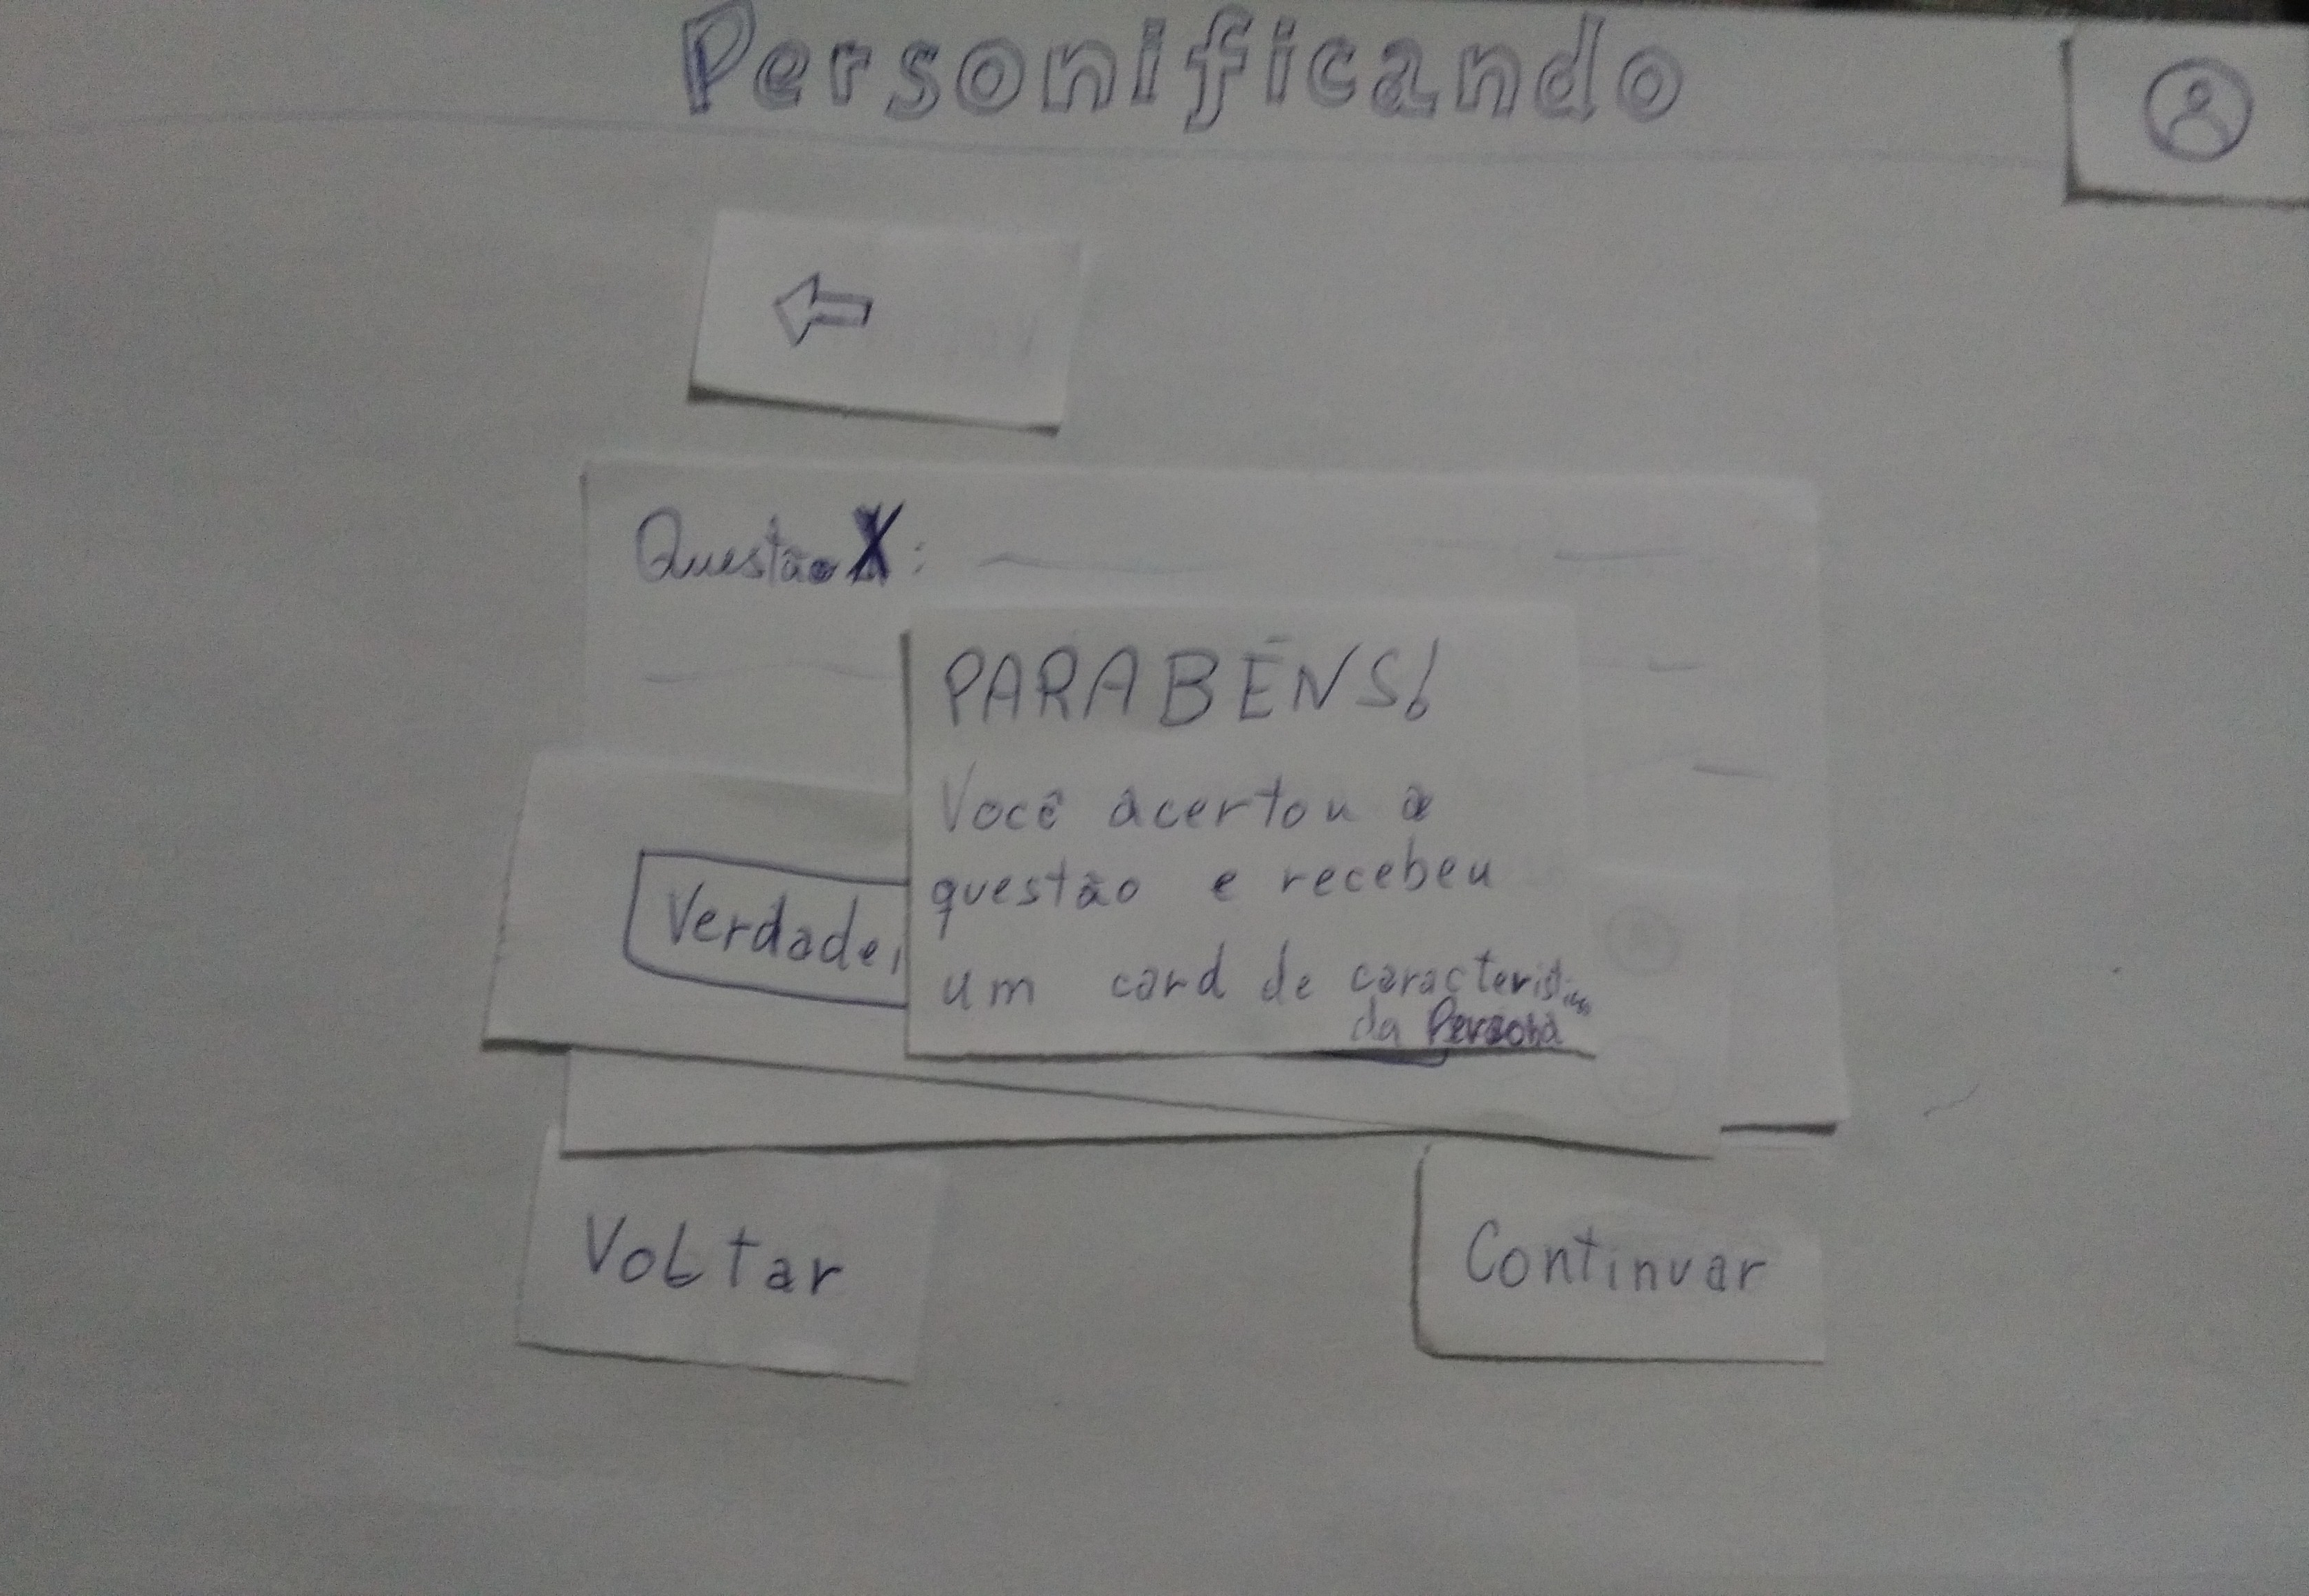 Personificando
Questão X:
PARABÉNS!
Você acertou a
questão e recebeu
um card de
da Persona
Verdadei
Voltar
Continuar